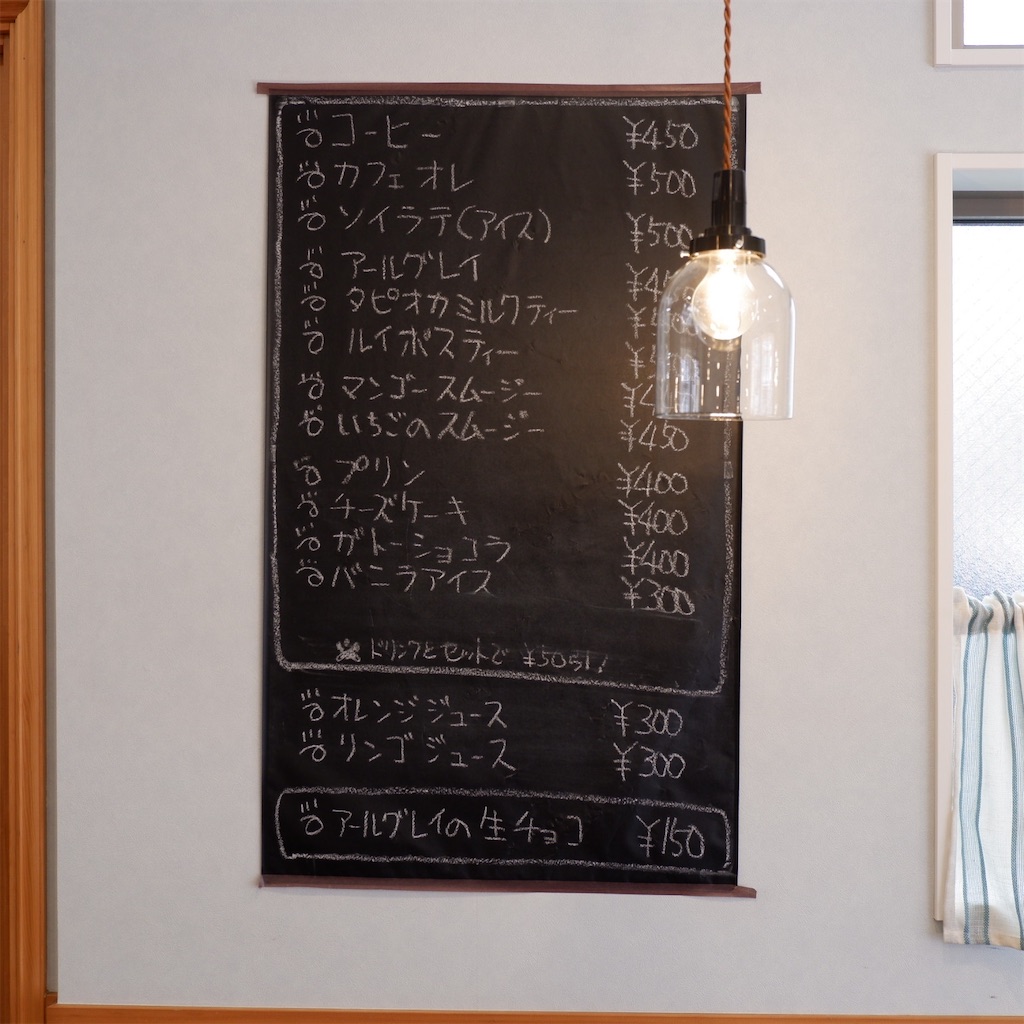 コーヒー ¥450
カフェオレ ¥500
ソイラテ(アイス) ¥500
アールグレイ
タピオカミルクティー
ルイボスティー
マンゴースムージー
いちごのスムージー ¥450
プリン ¥400
チーズケーキ ¥400
ガトーショコラ ¥400
バニラアイス ¥300
※ドリンクとセットで ¥50引!
オレンジジュース ¥300
リンゴジュース ¥300
アールグレイの生チョコ ¥150